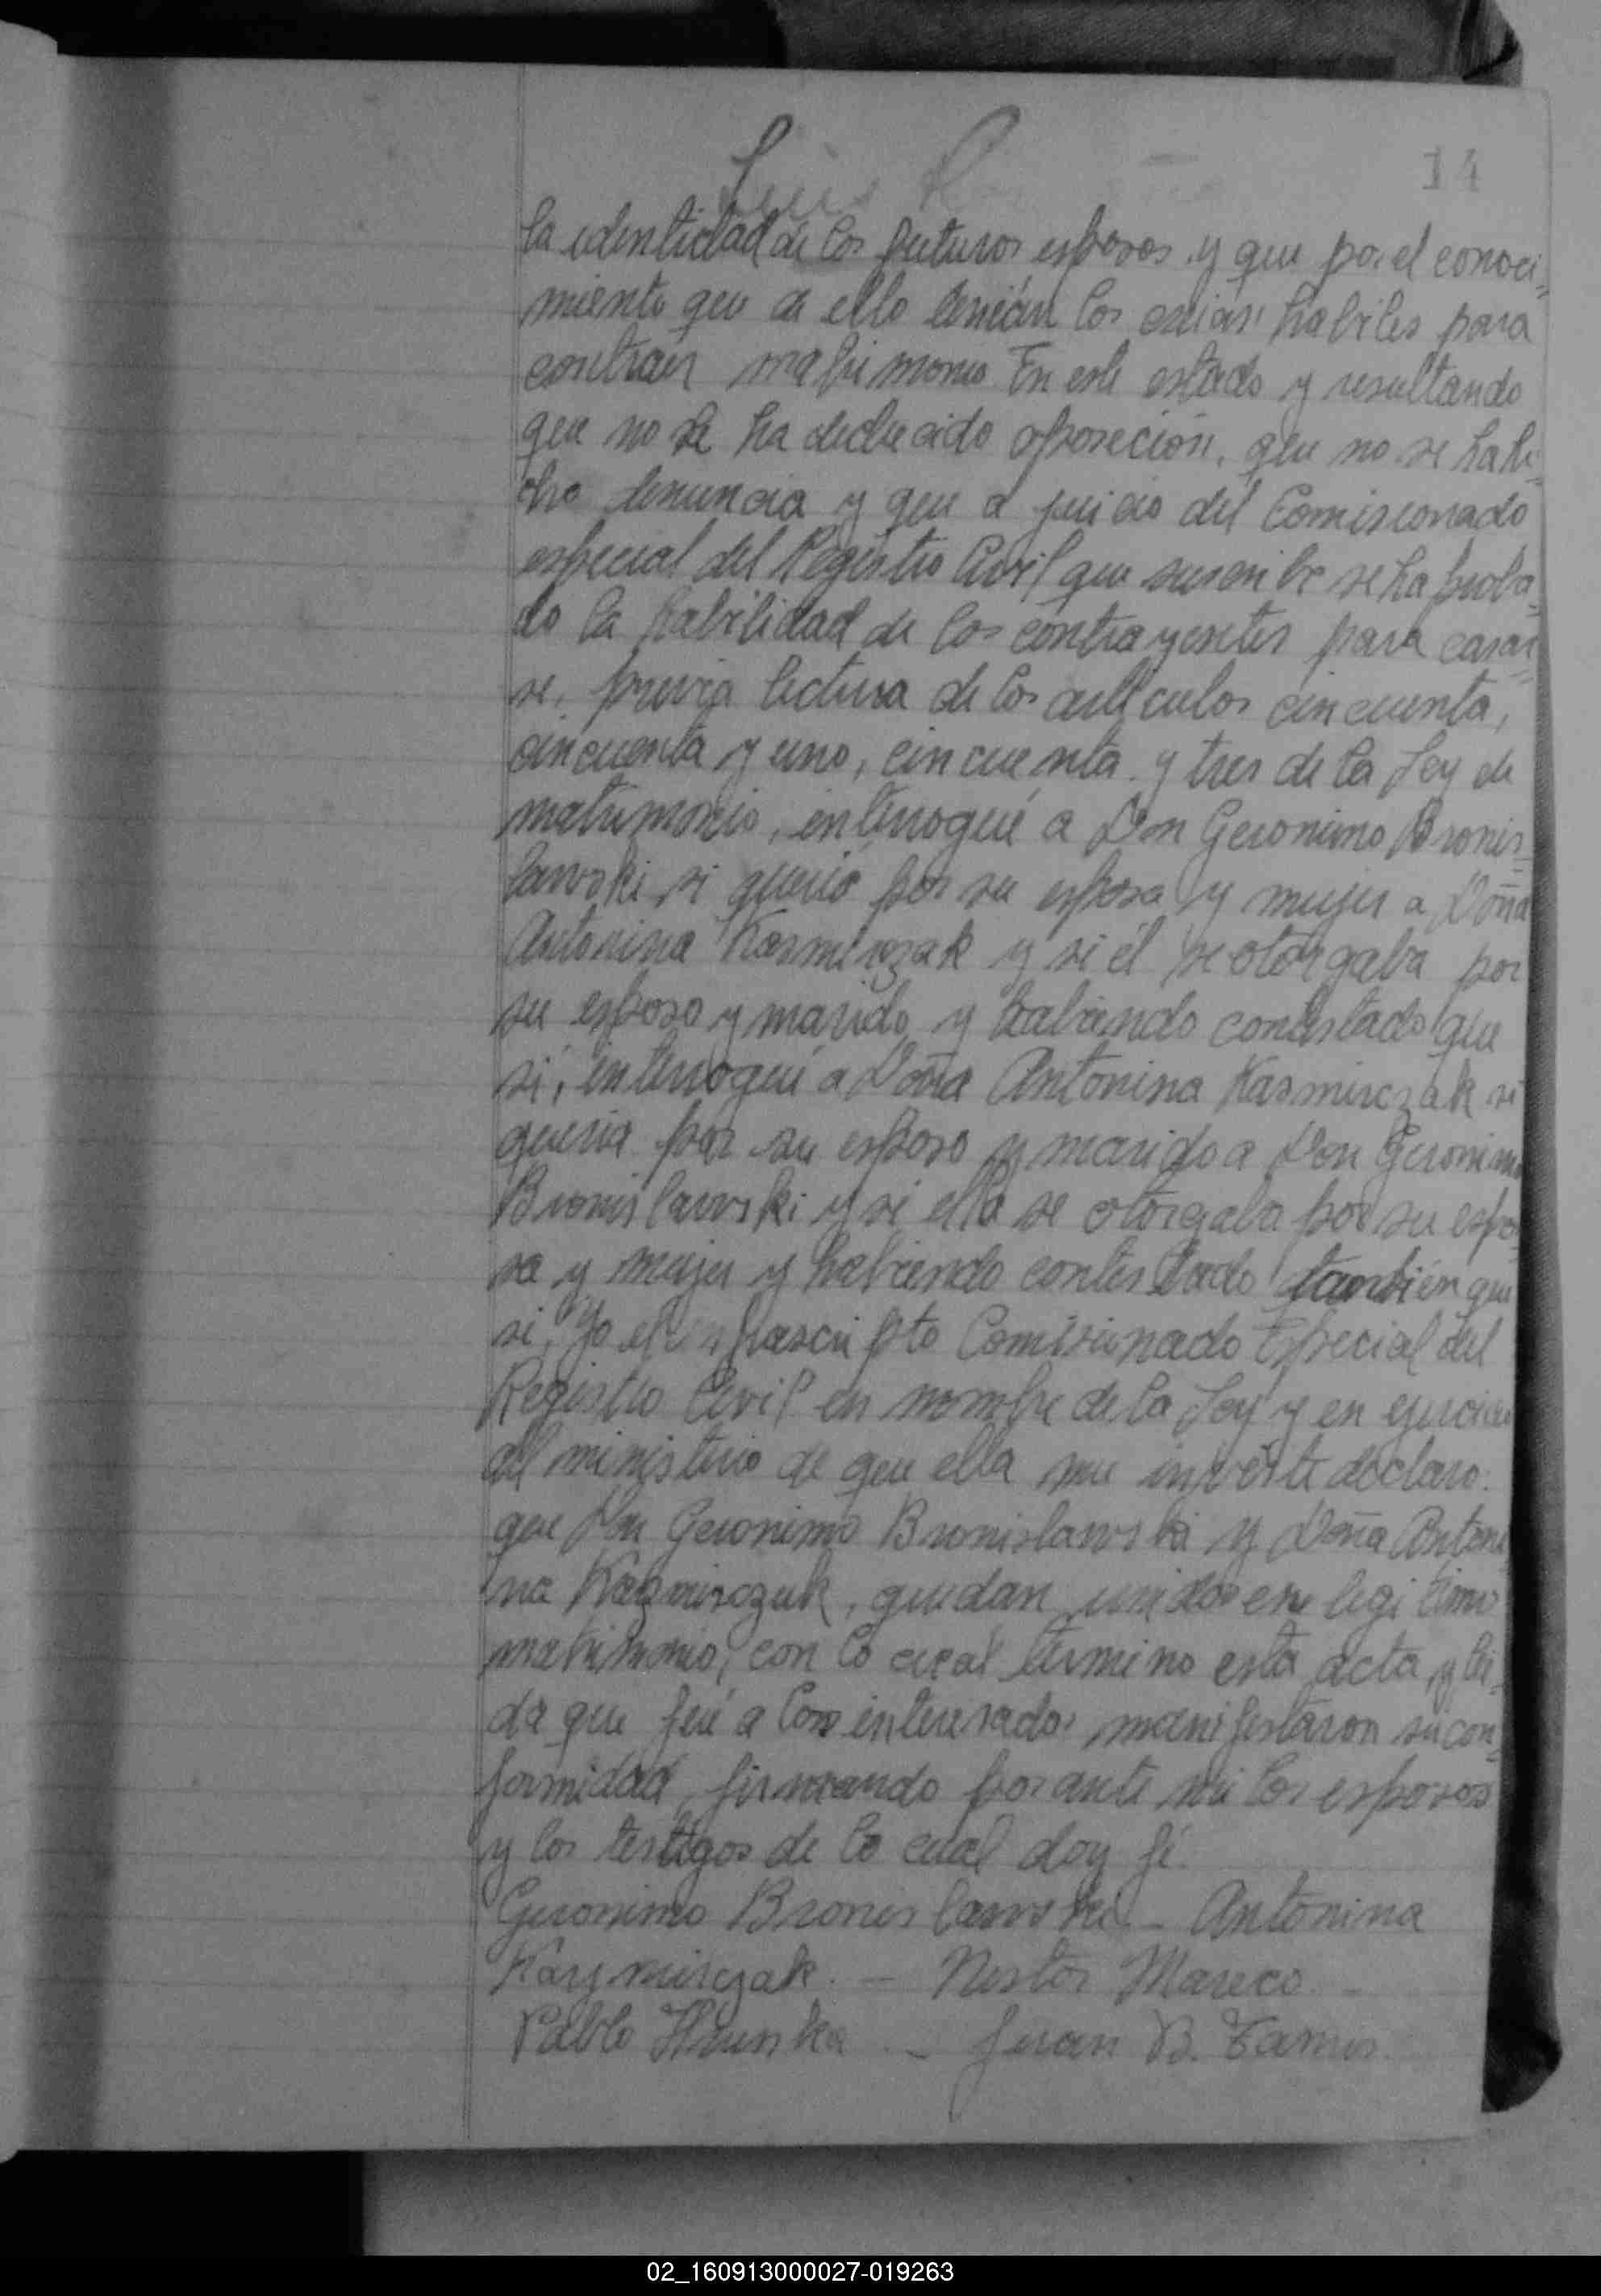 14
la identidad de los futuros esposos y que por el conoci=
miento que de ello tenián los creian habiles para
contraer matrimonio. En este estado y resultando
que no se ha deducido oposición, que no se ha he=
cho denuncia y que a juicio del Comisionado
especial del Registro Civil que suscribe se ha proba=
do la habilidad de los contrayentes para casar=
se, previa lectura de los artículos cincuenta,
cincuenta y uno, cincuenta y tres de la Ley de
matrimonio, interrogué a Don Geronimo Bronis=
lawski si queria por su esposa y mujer a Doña
Antonina Kasmirczak y si él se otorgaba por
su esposo y marido y habiendo contestado que
si, interrogué a Doña Antonina Kasmirczak si
queria por su esposo y marido a Don Geronimo
Bronislawski y si ella se otorgaba por su espo=
sa y mujer y habiendo contestado también que
si, Yo el infrascripto Comisionado Especial del
Registro Civil en nombre de la Ley y en ejercicio
del ministerio de que ella me inviste declaro:
que Don Geronimo Bronislawski y Doña Antoni
na Kazmirczak, quedan unidos en legitimo
matrimonio, con lo cual termino esta acta, y leí=
da que fué a los interesados manifestaron su con=
formidad, firmando por ante mi los esposos
y los testigos de lo cual doy fé.
Geronimo Bronislawski - Antonina
Kazmirczak. - Nestor Mareco. -
Pablo - Juan B.
02_160913000027-019263